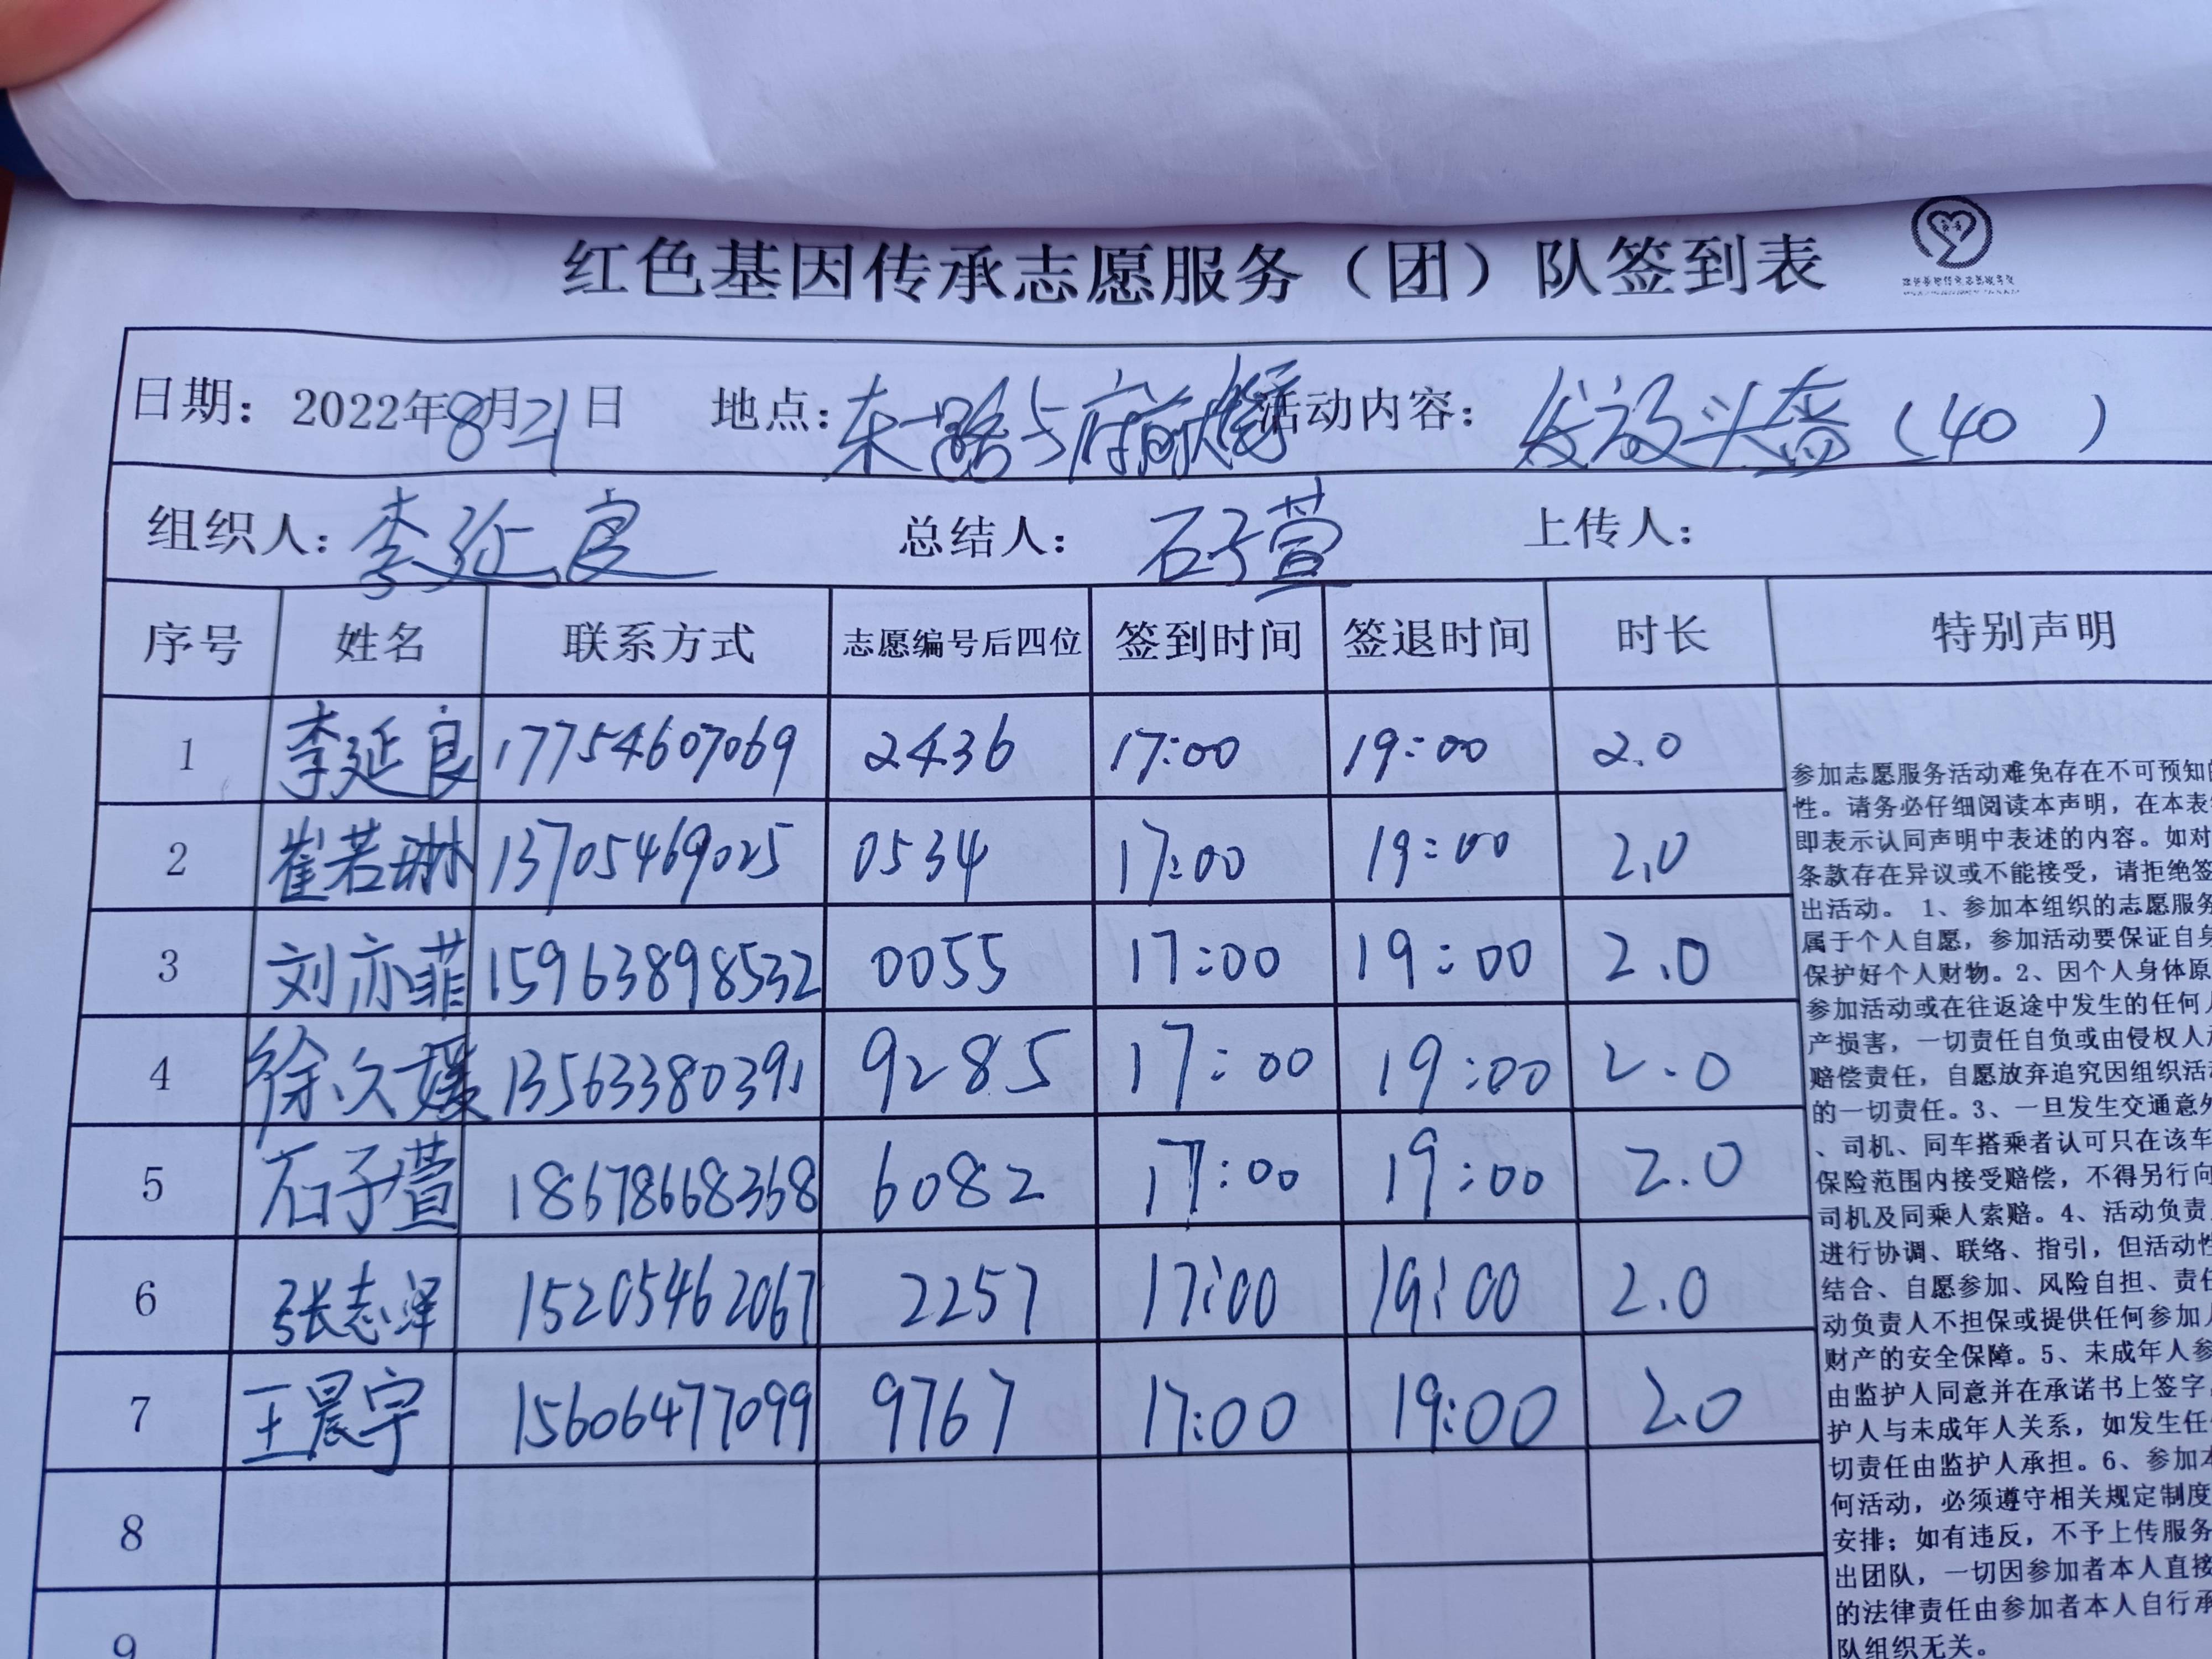 红色基因传承志愿服务（团）队签到表
日期：2022年8月21日 地点：东一路与府前街 活动内容：发放头盔（40 ）
组织人：李延良 总结人：石子萱 上传人：
序号 姓名 联系方式 志愿编号后四位 签到时间 签退时间 时长 特别声明
1 李延良 17754607069 2436 17:00 19:00 2.0
2 崔若琳 13705469025 0534 17:00 19:00 2.0
3 刘亦菲 15963898532 0055 17:00 19:00 2.0
4 徐文媛 13563380391 9285 17:00 19:00 2.0
5 石子萱 18678668368 6082 17:00 19:00 2.0
6 张志泽 15205462067 2257 17:00 19:00 2.0
7 王晨宇 15606477099 9767 17:00 19:00 2.0
8
9
参加志愿服务活动难免存在不可预知
性。请务必仔细阅读本声明，在本表
即表示认同声明中表述的内容。如对
条款存在异议或不能接受，请拒绝签
出活动。 1、参加本组织的志愿服务
属于个人自愿，参加活动要保证自身
保护好个人财物。2、因个人身体原
参加活动或在往返途中发生的任何
产损害，一切责任自负或由侵权人
赔偿责任，自愿放弃追究因组织活
的一切责任。3、一旦发生交通意外
、司机、同车搭乘者认可只在该车
保险范围内接受赔偿，不得另行向
司机及同乘人索赔。4、活动负责
进行协调、联络、指引，但活动性
结合、自愿参加、风险自担、责任
动负责人不担保或提供任何参加
财产的安全保障。5、未成年人参
由监护人同意并在承诺书上签字，
护人与未成年人关系，如发生任
切责任由监护人承担。6、参加本
何活动，必须遵守相关规定制度
安排；如有违反，不予上传服务
出团队，一切因参加者本人直接
的法律责任由参加者本人自行承
队组织无关。